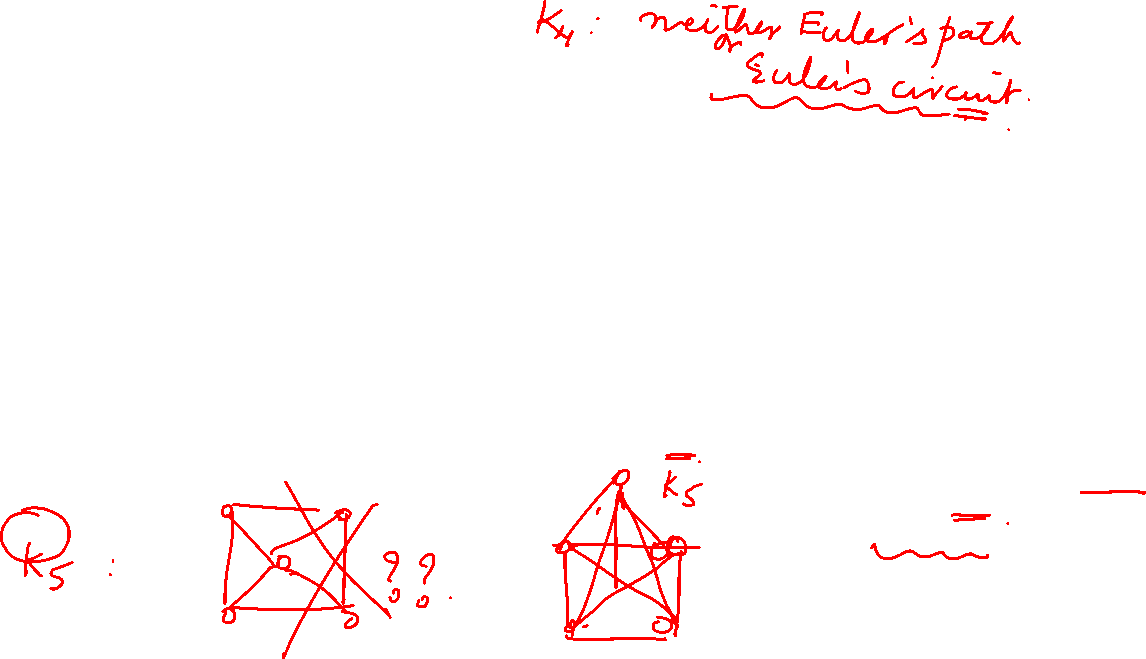 K4: neither Euler's path
or
Euler's circuit.
K5
K5 :
??.